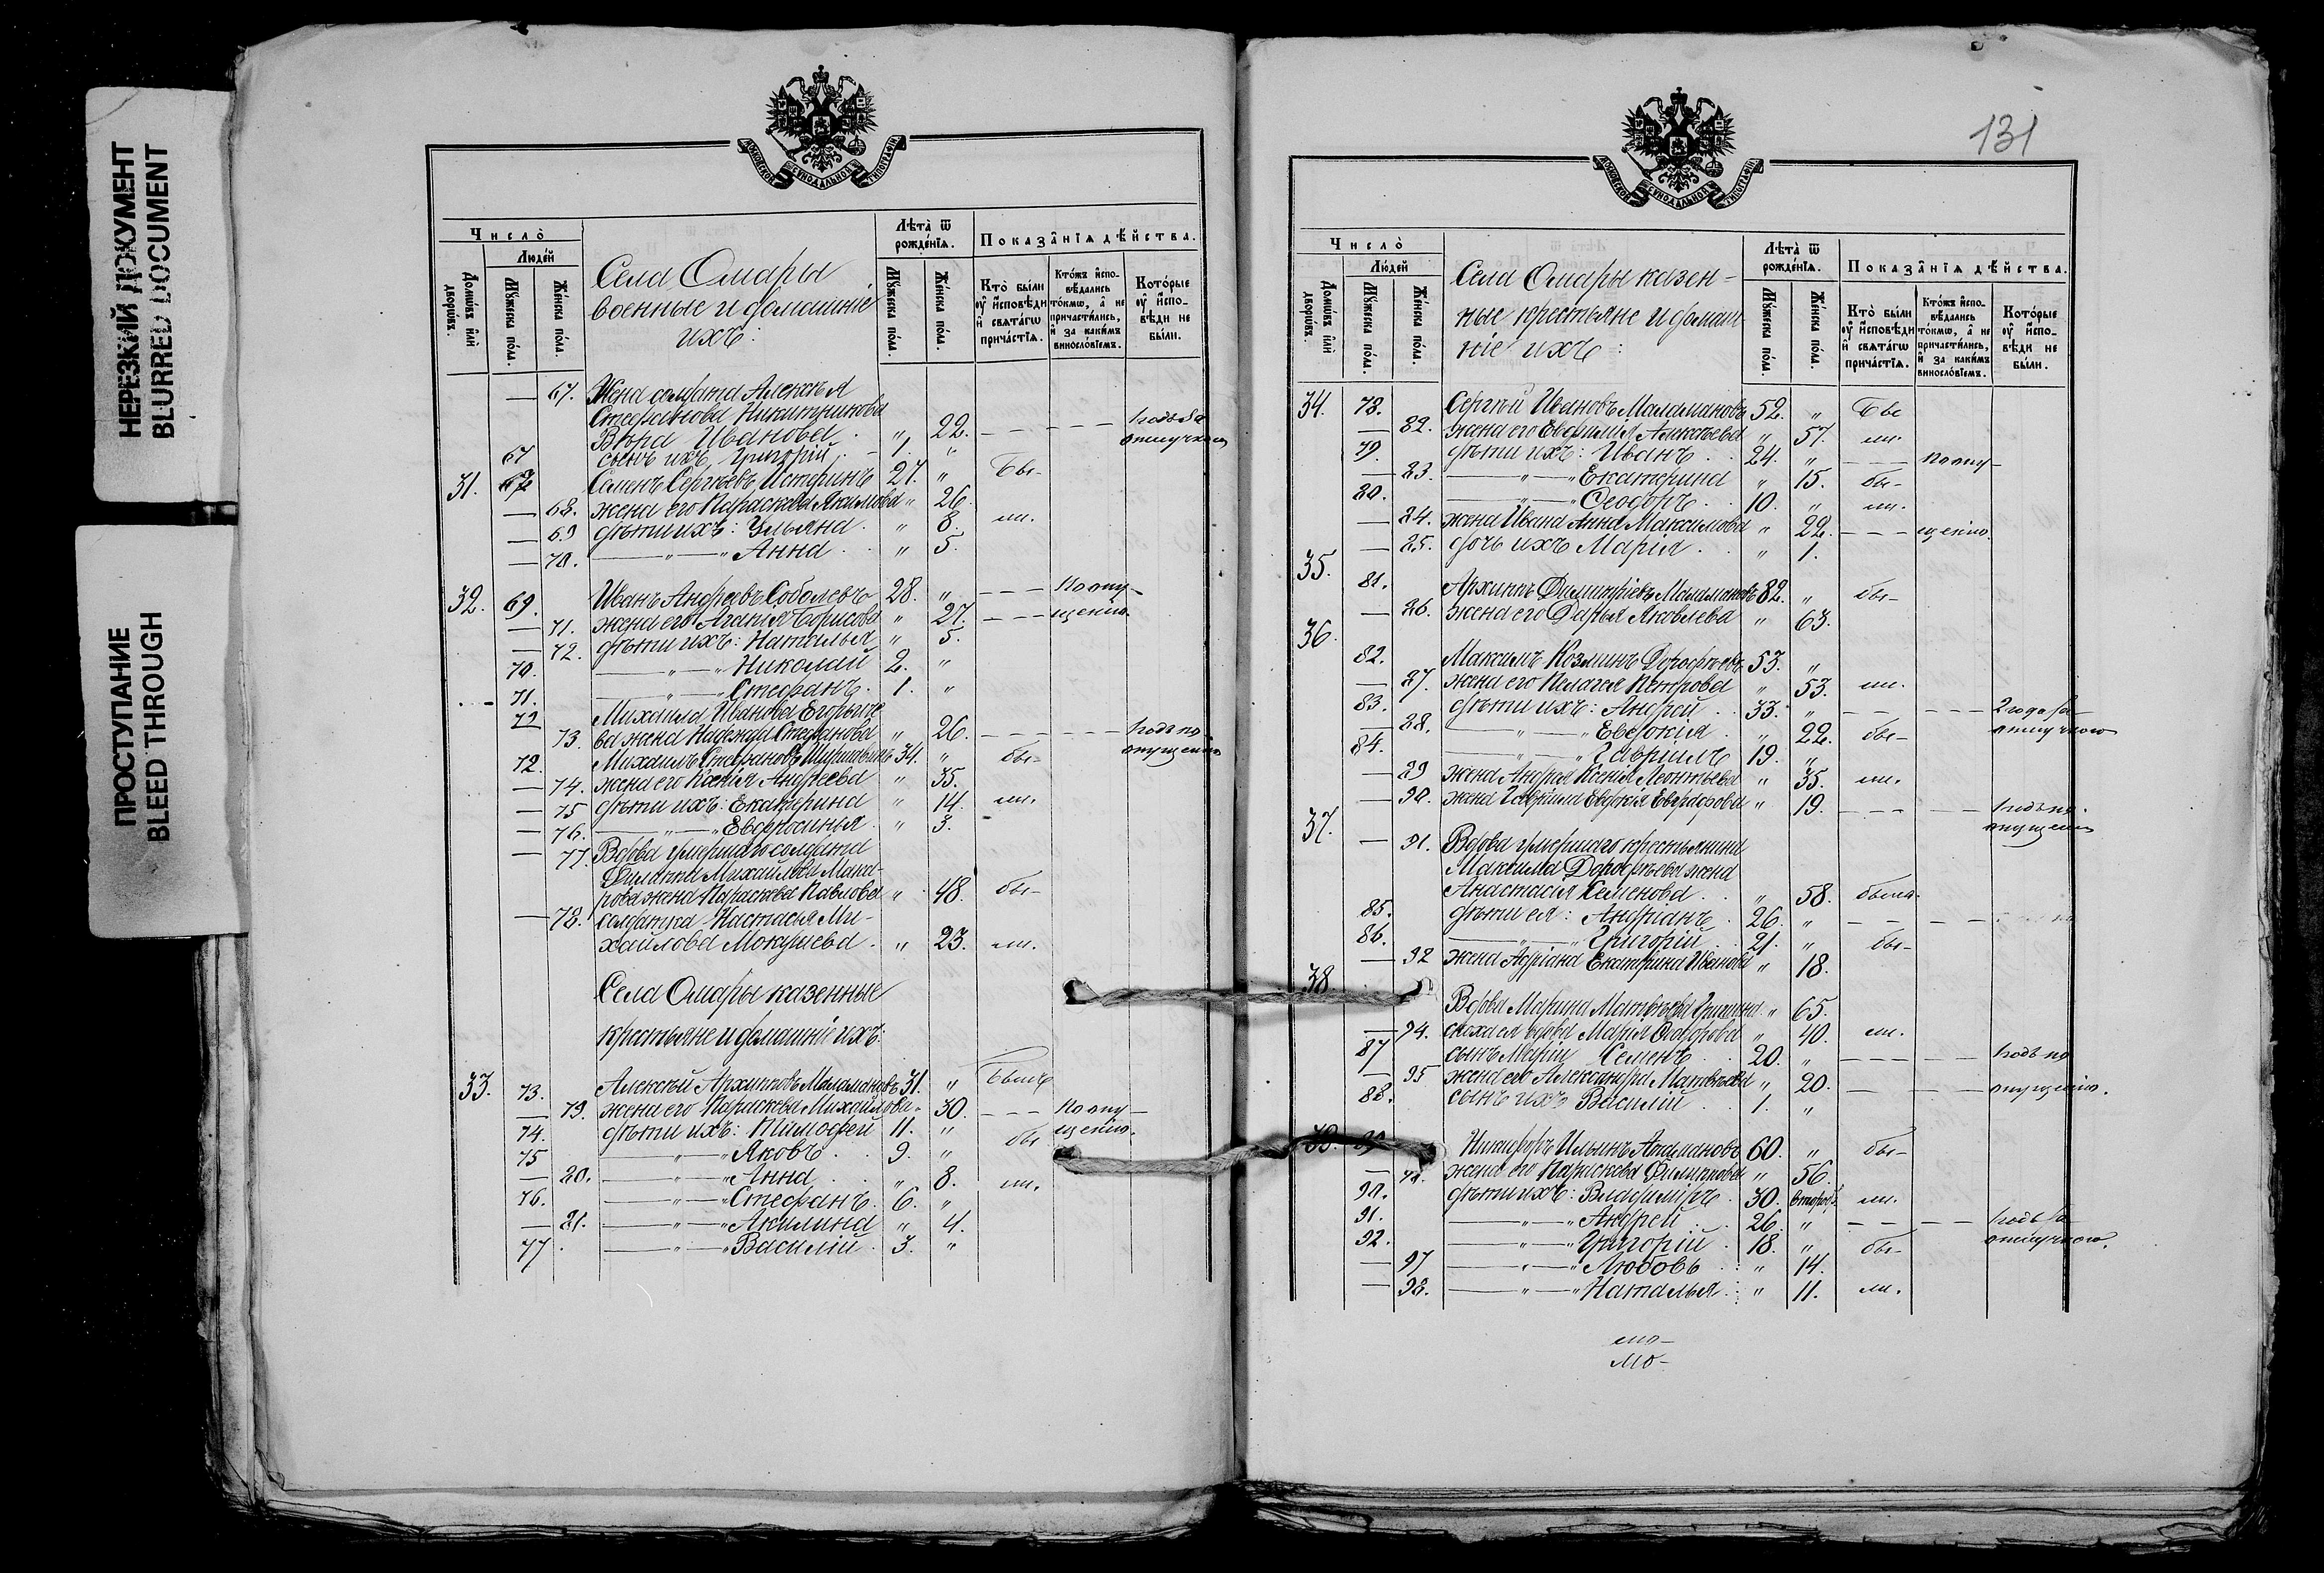 НЕРЕЗКИЙ ДОКУМЕНТ
BLURRED DOCUMENT
ПРОСТУПАНИЕ
BLEED THROUGH
МОСКОВСКОЙ СУНОДАЛЬНОЙ ТИПОГРАФІИ
Число
Людей
Домѡвъ или дворѡвъ.
Мужеска пола.
Женска пола.
Села Омары
военные и домашніе
ихъ:
Лѣта ѿ рожденія.
Мужеска пола.
Женска пола.
Показанія дѣйства.
Кто были оу исповѣди и свѧтагѡ причастія.
Ктожъ исповѣдались токмѡ, а не причастились, и за какимъ винословіемъ.
Которые оу исповѣди не были.
67. Жена солдата Алексѣя
Стефанова Никитникова
Вѣра Иванова „ 22. годъ за
67 сынъ ихъ Григорій 1. „ отлучкою
31. Семенъ Сергѣевъ Истринъ 27. „ бы-
68. жена его Параскева Якимова „ 26.
69 дѣти ихъ: Ульяна „ 8. ли.
70. „ Анна „ 5.
32. 69. Иванъ Андреевъ Соболевъ 28. „ По опу-
71. жена его Агапія Борисова „ 27. щенію
72. дѣти ихъ: Наталья „ 5.
70. „ Николай 2. „
71. „ Стефанъ 1. „
Михаила Иванова Егорыче
73. ва жена Надежда Стефанова „ 26. годъ по
72. Михаилъ Стефановъ 34. „ бы- опущенію
74. жена его Ксенія Андреева „ 35.
75 дѣти ихъ: Екатерина „ 14. ли.
76. „ Евфросинья „ 3.
77. Вдова умершаго солдата
Филата Михайлова Мака-
рова жена Параскева Павлова „ 48. бы-
78. солдатка Настасья Ми-
хайлова Мокушева „ 23. ли.
Села Омары казенные
крестьяне и домашніе ихъ:
33. 73. Алексѣй Архиповъ Маламановъ 31. „ Былъ
79. жена его Параскева Михайлова „ 30. По опу-
74. дѣти ихъ: Тимофей 11. „ бы щенію.
75 „ Яковъ 9. „
80. „ Анна „ 8. ли.
76. „ Стефанъ 6. „
81. „ Акилина „ 4.
77. „ Василій 3. „
131
МОСКОВСКОЙ СУНОДАЛЬНОЙ ТИПОГРАФІИ
Число
Людей
Домѡвъ или дворѡвъ.
Мужеска пола.
Женска пола.
Села Омары казен-
ные крестьяне и домаш-
ніе ихъ:
Лѣта ѿ рожденія.
Мужеска пола.
Женска пола.
Показанія дѣйства.
Кто были оу исповѣди и свѧтагѡ причастія.
Ктожъ исповѣдались токмѡ, а не причастились, и за какимъ винословіемъ.
Которые оу исповѣди не были.
34. 78. Сергѣй Ивановъ Маламановъ 52. „ Бы
82. жена его Евфимія Алексѣева „ 57. ли.
79. дѣти ихъ: Иванъ 24. „ По опу-
83. „ Екатерина „ 15. бы-
80. „ Ѳеодоръ 10. „ ли.
84. жена Ивана Анна Максимова „ 22. щенію.
85. дочь ихъ Марія „ 1.
35. 81. Архипъ Димитріевъ Маламановъ 82. „ бы-
86. жена его Дарья Яковлева „ 63.
36. 82. Максимъ Козминъ Дорофѣевъ 53. „
87. жена его Пелагея Петрова „ 53. ли.
83. дѣти ихъ: Андрей 33. „ 2 года за
88. „ Евдокія „ 22. бы- отлучкою
84. „ Гавріилъ 19. „
89 жена Андрея Ксенія Леонтьева „ 35. ли.
90. жена Гавріила Евдокія Евграфова „ 19. годъ по
опущенію
37. 91. Вдова умершаго крестьянина
Максима Дорофѣева жена
Анастасія Семенова „ 58. была.
85. дѣти ея: Андріанъ 26. „
86. „ Григорій 21. „ бы-
92 жена Адріана Екатерина Иванова „ 18.
38 Вдова Марина Матвѣева „ 65.
94. сноха ея вдова Марія Ѳеодорова „ 40. ли.
87 сынъ Маріи Семенъ 20. „ годъ по
95 жена его Александра Матвѣева „ 20. опущенію.
88. сынъ ихъ Василій 1. „
Никифоръ Ильинъ 60. „ бы-
жена его Параскева Филиппова „ 56.
90. дѣти ихъ: Владиміръ 30. ли.
91. „ Андрей 26. „ годъ за
92. „ Григорій 18. „ бы- отлучкою.
97 „ Любовь „ 14.
98. „ Наталья „ 11. ли.